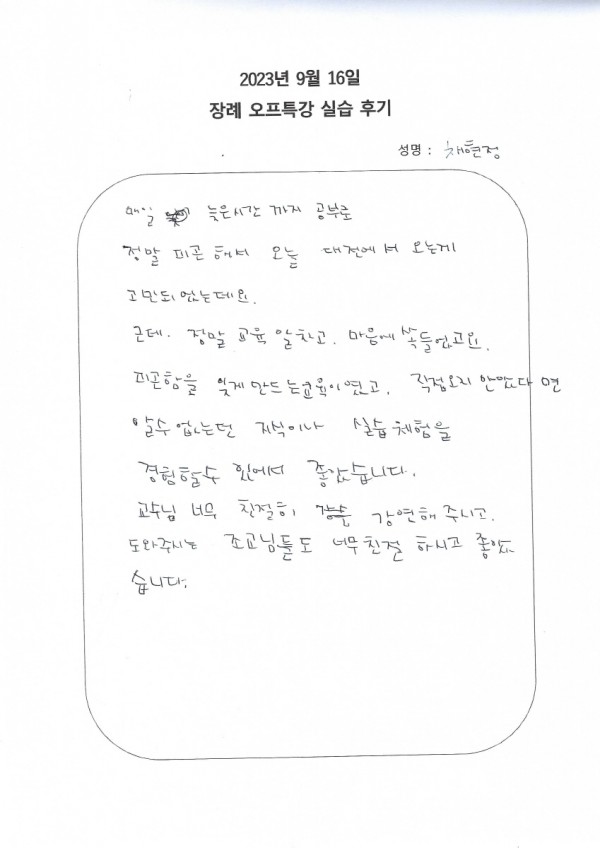 2023년 9월 16일
장례 오프특강 실습 후기
성명 : 채현정
매일 늦은시간 까지 공부로
정말 피곤 해서 오늘 대전에서 오는게
고민되었는데요.
근데. 정말 교육 알차고. 마음에 쏙들었고요.
피곤함을 잊게만드는교육이였고, 직접오지 안았다 면
알수 없는던 지식이나 실습체험을
경험할수 있에서 좋았습니다.
교수님 너무 친절히 강연해 주니고.
도와주시는 조교님들도 너무친절 하시고 좋았
습니다.